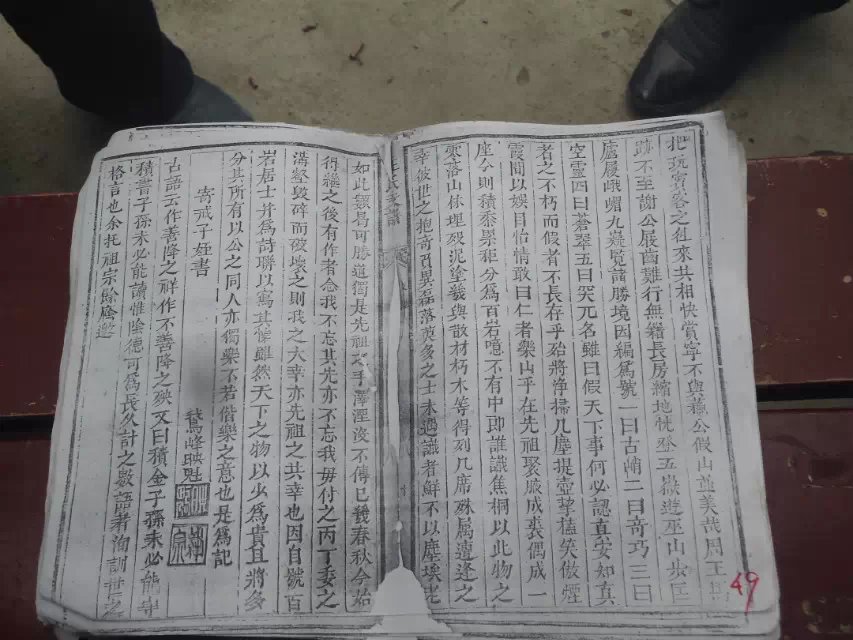 把玩賓客之往來共相快賞寧不與蘇公假山並美哉周王
跡不至謝公屐齒難行無緒長房縮地恍登五嶽遊巫山步匡
廬履峨嵋九嶷覽諸勝境因編為號一曰古峭二曰奇巧三曰
空靈四曰蒼翠五曰突兀名雖曰假天下事何必認真安如真
者之不朽而假者不長存乎殆將淨掃几塵提壺挈榼笑傲煙
霞間以娛目怡情敢曰仁者樂山乎在先祖聚族成裘偶成一
座今則積黍累秬分為百岩噫不有中郎誰識焦桐以此物之
冷落山林埋歿泥塗幾與散材朽木等得列几席殊屬遭逢之
幸彼世之抱奇負異磊落英多之士未遇識者鮮不以塵埃老
王氏家譜
如此類曷可勝道獨是先祖之手澤湮沒不傳已幾春秋今始
得禮之後有作者念我不忘其先亦不忘我毋付之丙丁委之
溝壑毀碎而破壞之則我之大幸亦先祖之共幸也因自號百
岩居士并為詩聯以寫其懷雖然天下之物以少為貴且將多
分其所有以公之同人亦獨樂不若偕樂之意也是為記
鷲峰映魁
寄戒子姪書
古語云作善降之祥作不善降之殃又曰積金子孫未必能守
積書子孫未必能讀惟陰德可為長久計之數語者洵訓世之
格言也余托祖宗餘廕選
49